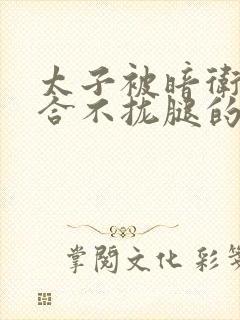 太子被暗衛
合不拢腿的
掌閱文化 彩